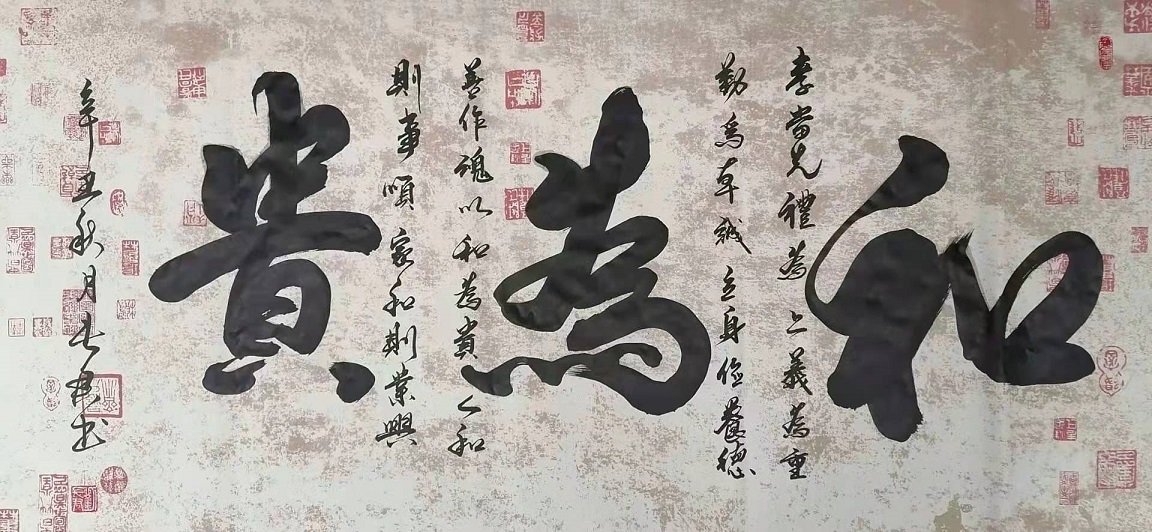 和為貴
孝當先禮為上義為重
勤爲本誠立身儉養德
善作魂以和為貴人和
則事順家和則業興
辛丑秋月書